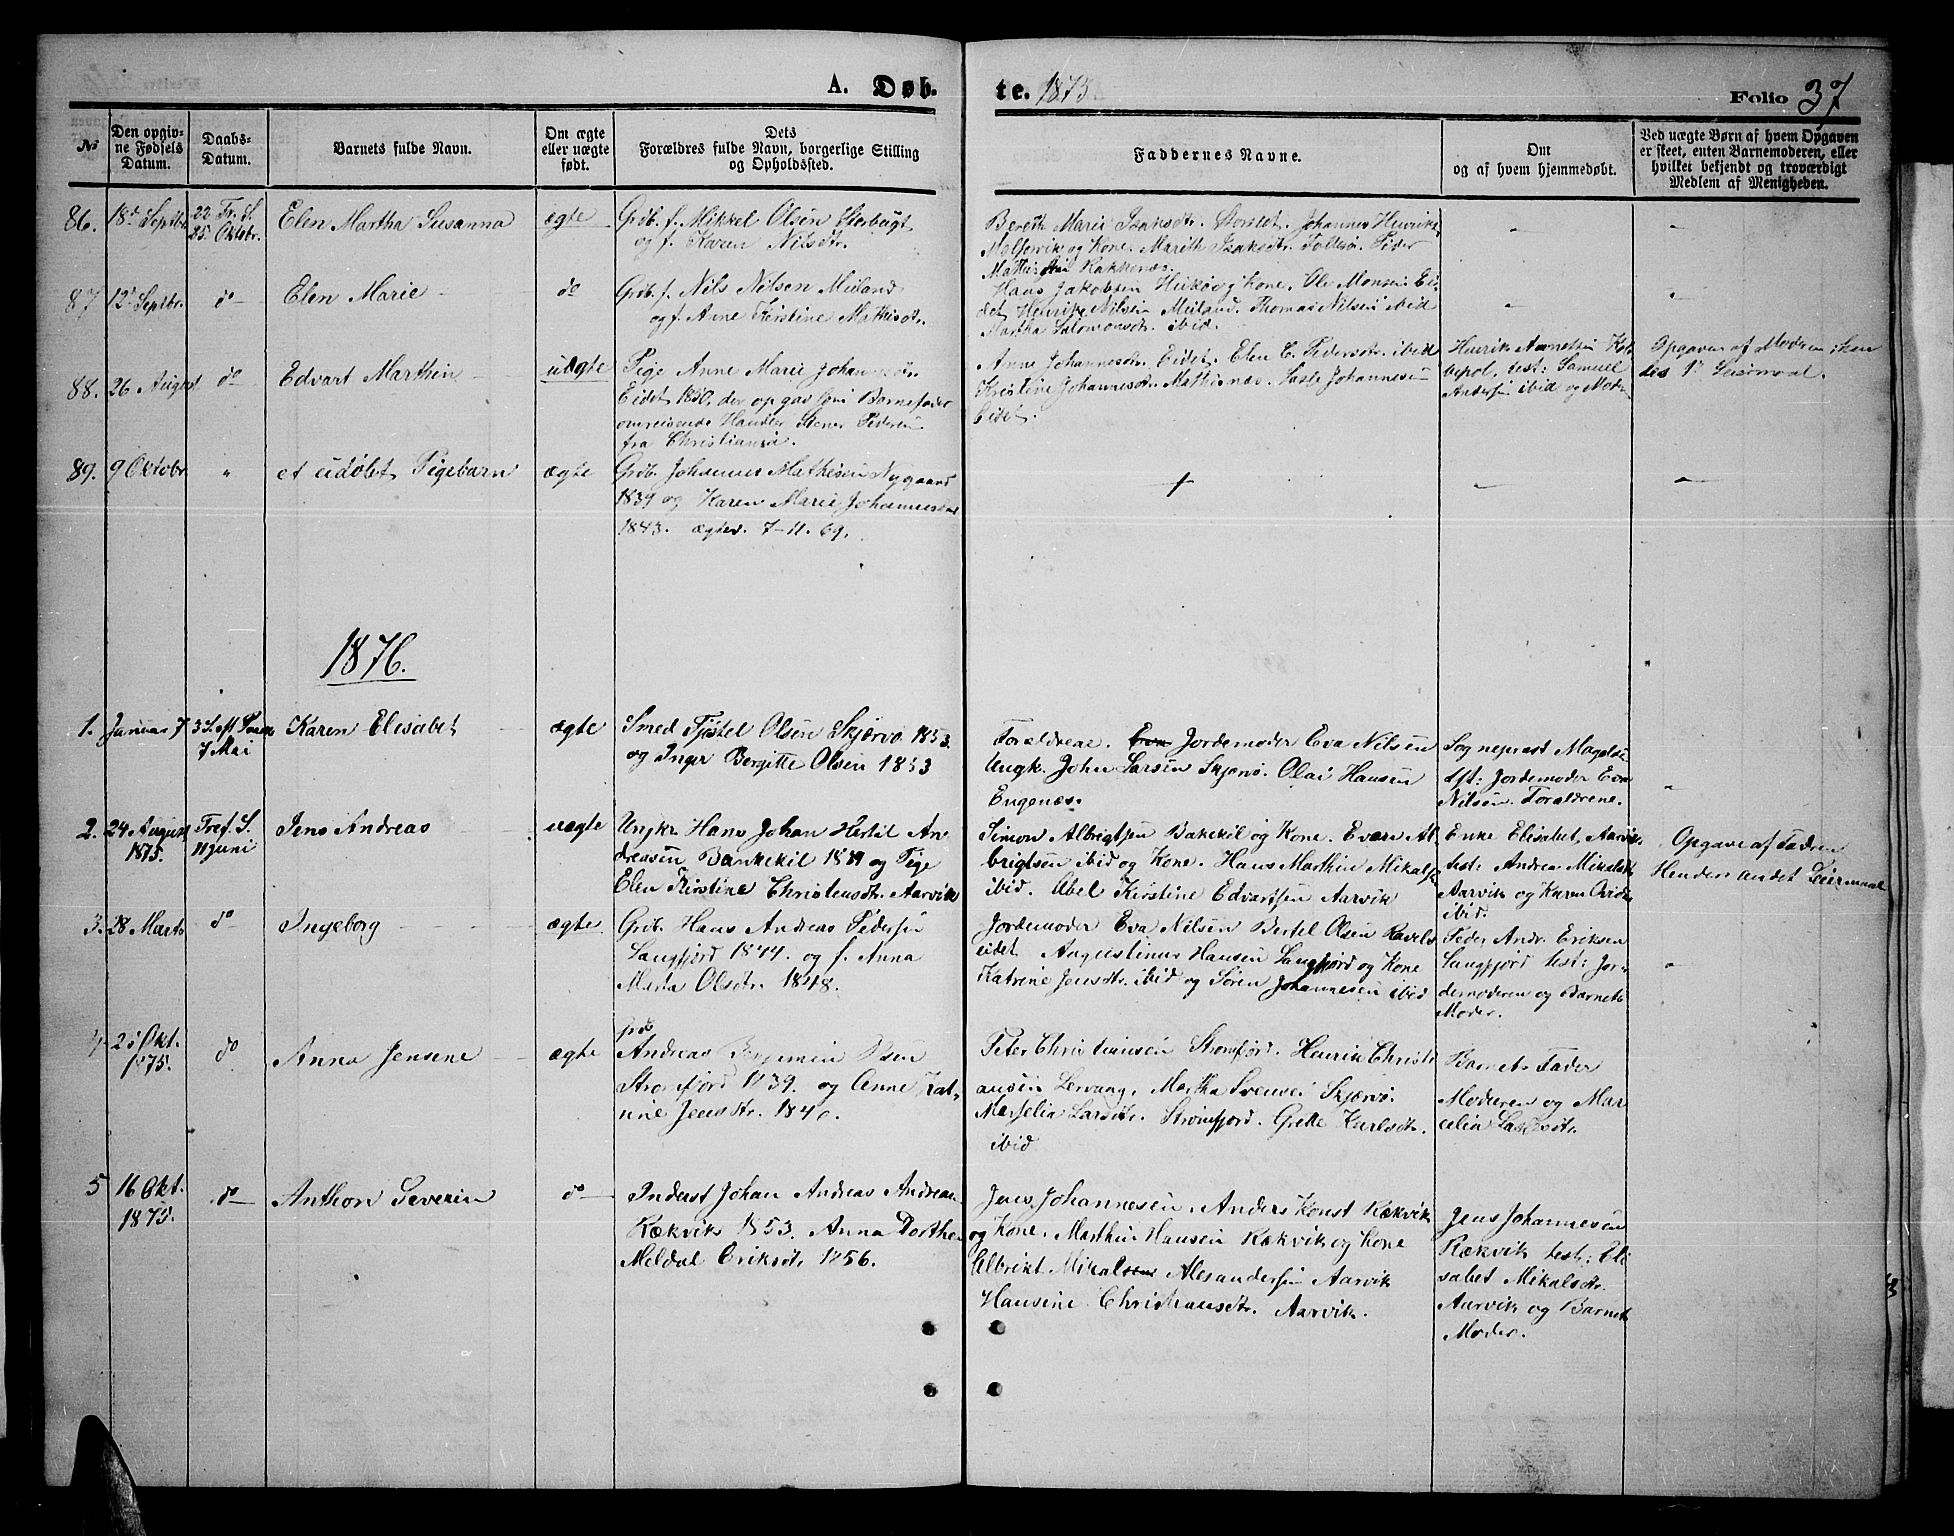 A. Døb. te. 1875 Folio 37
No
Den opgivne Fødsels Datum.
Daabs-Datum.
Barnets fulde Navn.
Om ægte eller uægte født.
Dets Forældres fulde Navn, borgerlige Stilling og Opholdssted.
Faddernes Navne.
Om og af hvem hjemmedøbt.
Ved uægte Børn af hvem Opgaven er skeet, enten Barnemoderen, eller hvilket bekjendt og troværdigt Medlem af Menigheden.
86. 18de Septbr.
22 Tr. S.
25. Oktobr.
Elen Martha Susanna
ægte
Grdb. f. Mikkel Olsen
og f. Karen Nilsdtr.
Bereth Marie Isaksdtr. Storslet. Johannes Henriks
og Kone. Marith Isaksdtr. Peder
Mathis Rakkenæs.
87 12te Septbr.
do
Elen Marie
do
Grdb. f. Nils Nilsen Meiland
og f. Anne Kirstine Mathisdtr.
Hans Jakobsen og Kone. Ole Monsen Ei-
det. Henrik Nilsen Meiland. Thomas Nilsen ibid
Martha Salomonsdtr. ibid.
88. 26 August
do
Edvart Marthin
uægte
Pige Anne Marie
Eidet 1850, der opgav som Barnefader
omreisende Handler Stener Pedersen
fra
Anne Johannesdtr. Eidet. Elen C. Pedersdtr. ibid
Kristine Johannesdtr. Mathisnæs. Johannesen
Eidet.
Henrik
test: Samuel
Andersen ibid og Moder
Opgaven af Modren
des 1ste Leiermaal.
89. 9 Oktobr.
"
et udøbt Pigebarn
ægte
Grdb. Johannes Mathisen Nygaard
1839 og Karen Marie Johannesdtr
1843. ægtev. 7-11.69.
1876.
1. Januar 7
7 Mai
Karen Elisabet
ægte
Smed Olsen Skjærvø 1853.
og Inger Bergitte Olsen 1853
Foraldrene. Eva Jordemoder Eva Nilsen
Ungk. John Larsen Skjærvø. Olai Hansen
Engenæs.
Sogneprest
tst: Jordemoder Eva
Nilsen. Foraldrene.
2. 24 August
1875.
Tref. S.
11 Juni
Jens Andreas
uægte
Ungkr. Hans Johan Hertil An-
dreasen Bankekil og Pige
Elen Kirstine Christensdtr. Aarvik
Simon Albrigtsen Bakekil og Kone. Evarn Al-
brigtsen ibid og Kone. Hans Marthin Mikalsen
ibid. Abel Kirstine Edvartsen Aarvik
Enke Elisabet Aarvik
test: Andrea Mikalsdtr
Aarvik og Karen
ibid.
Opgave af Fadren
Hendes andet Leiermaal
3. 28 Marts
do
Ingeborg
ægte.
Grdb. Hans Andreas Pedersen
Langfjord 1844. og f. Anna
Marta Olsdtr. 1848.
Jordemoder Eva Nilsen Bertel Olsen Ravels-
eidet Augustinus Hansen Langfjord og Kone
Katrine Jensdtr. ibid og Søren Johannesen ibid
Peder Andr. Eriksen
Langfjord test: Jor-
demoderen og Barnets
Moder.
4
Okt.
1875.
do
Anna Jensene
ægte
Andreas Benjamin Olsen
Strømfjord 1839. og Anne Kat-
rine Jensdtr. 184
Peter Christiansen Strømfjord. Henrik Christi
ansen Lervaag, Martha Svensen Skjærvø.
Marselia Larsdtr. Strømfjord. Grethe Karlsdtr.
ibid
Barnets Fader
Moderen og Mar
celia Larsdtr.
5 16 Okt.
1875.
do
Anthon Severin
do
Inderst Johan Andreas Andreasen
Rækvik 1853. Anna Dorthea
Meldal Eriksdtr. 1856.
Jens Johannesen. Anders Konst Rækvik
og Kone. Marthin Hansen Rækvik og Kone
Albrikt Mikalsen Alexandersen Aarvik
Hansine Christiansdtr. Aarvik.
Jens Johannesen
Rækvik test: Eli
sabet Mikalsdtr.
Aarvik og Barnets
Moder.